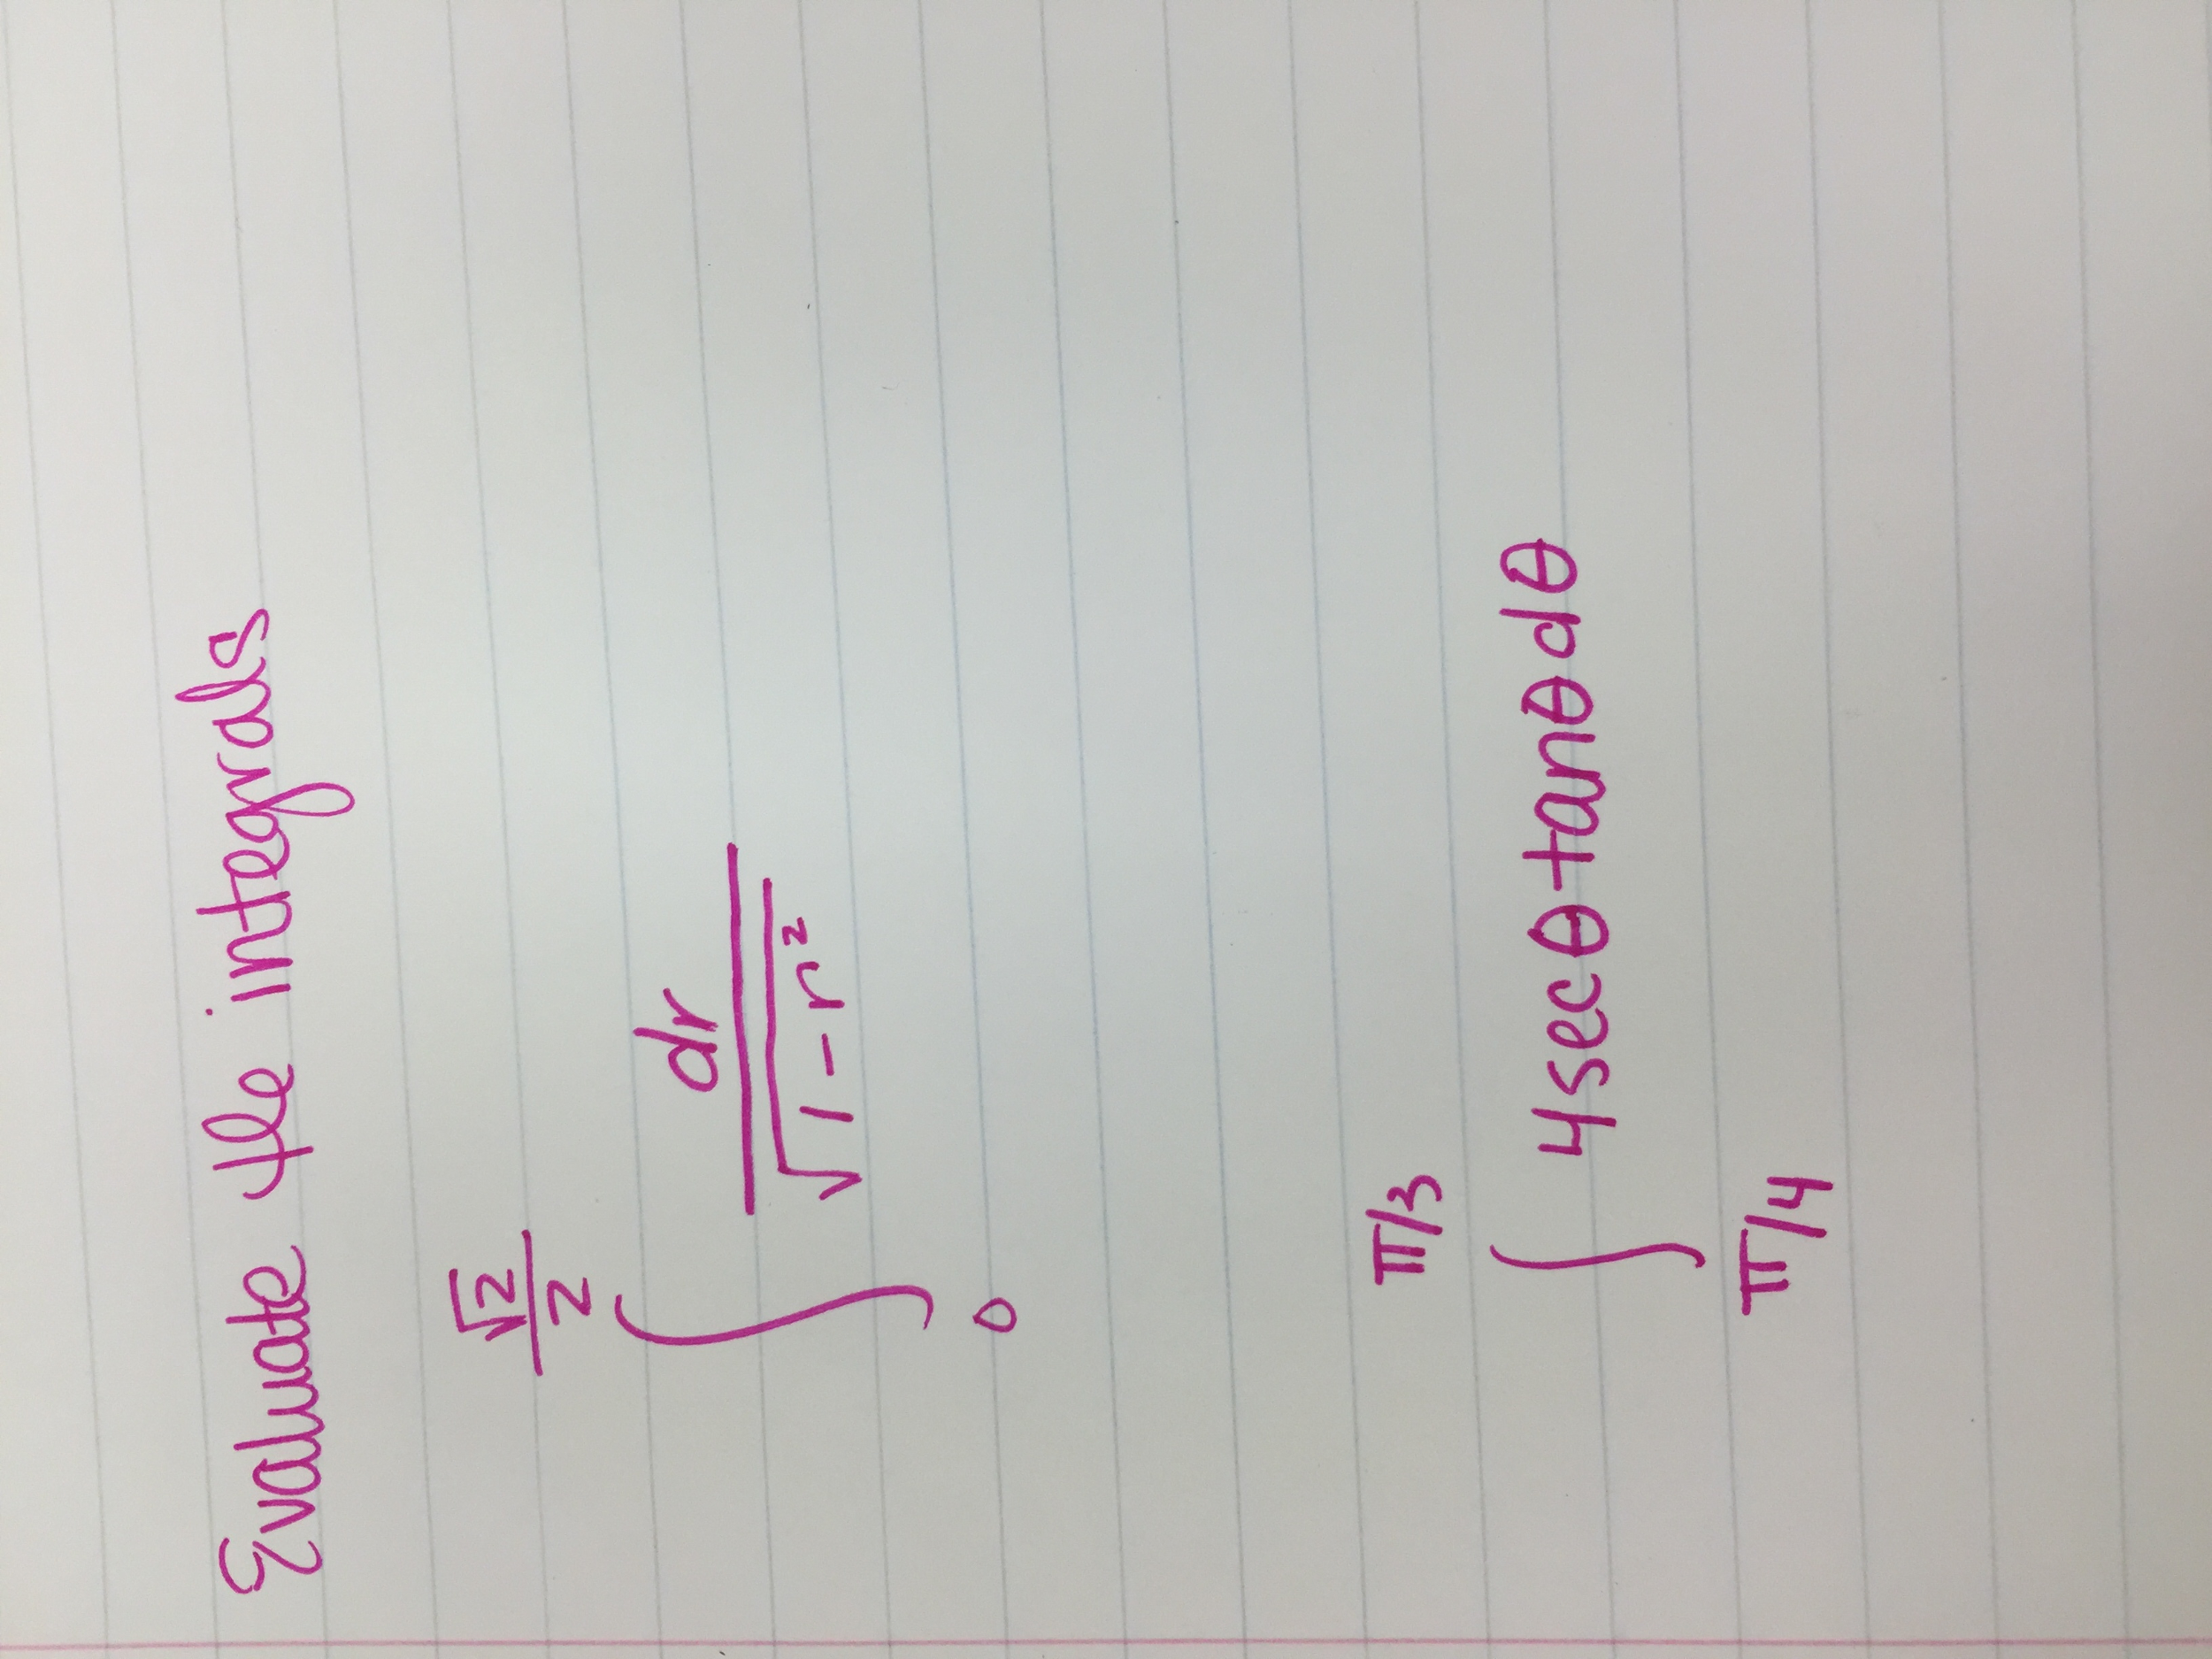 Evaluate the integrals
√2/2
∫ dr/√1-r²
0
π/3
∫ 4secθtanθdθ
π/4